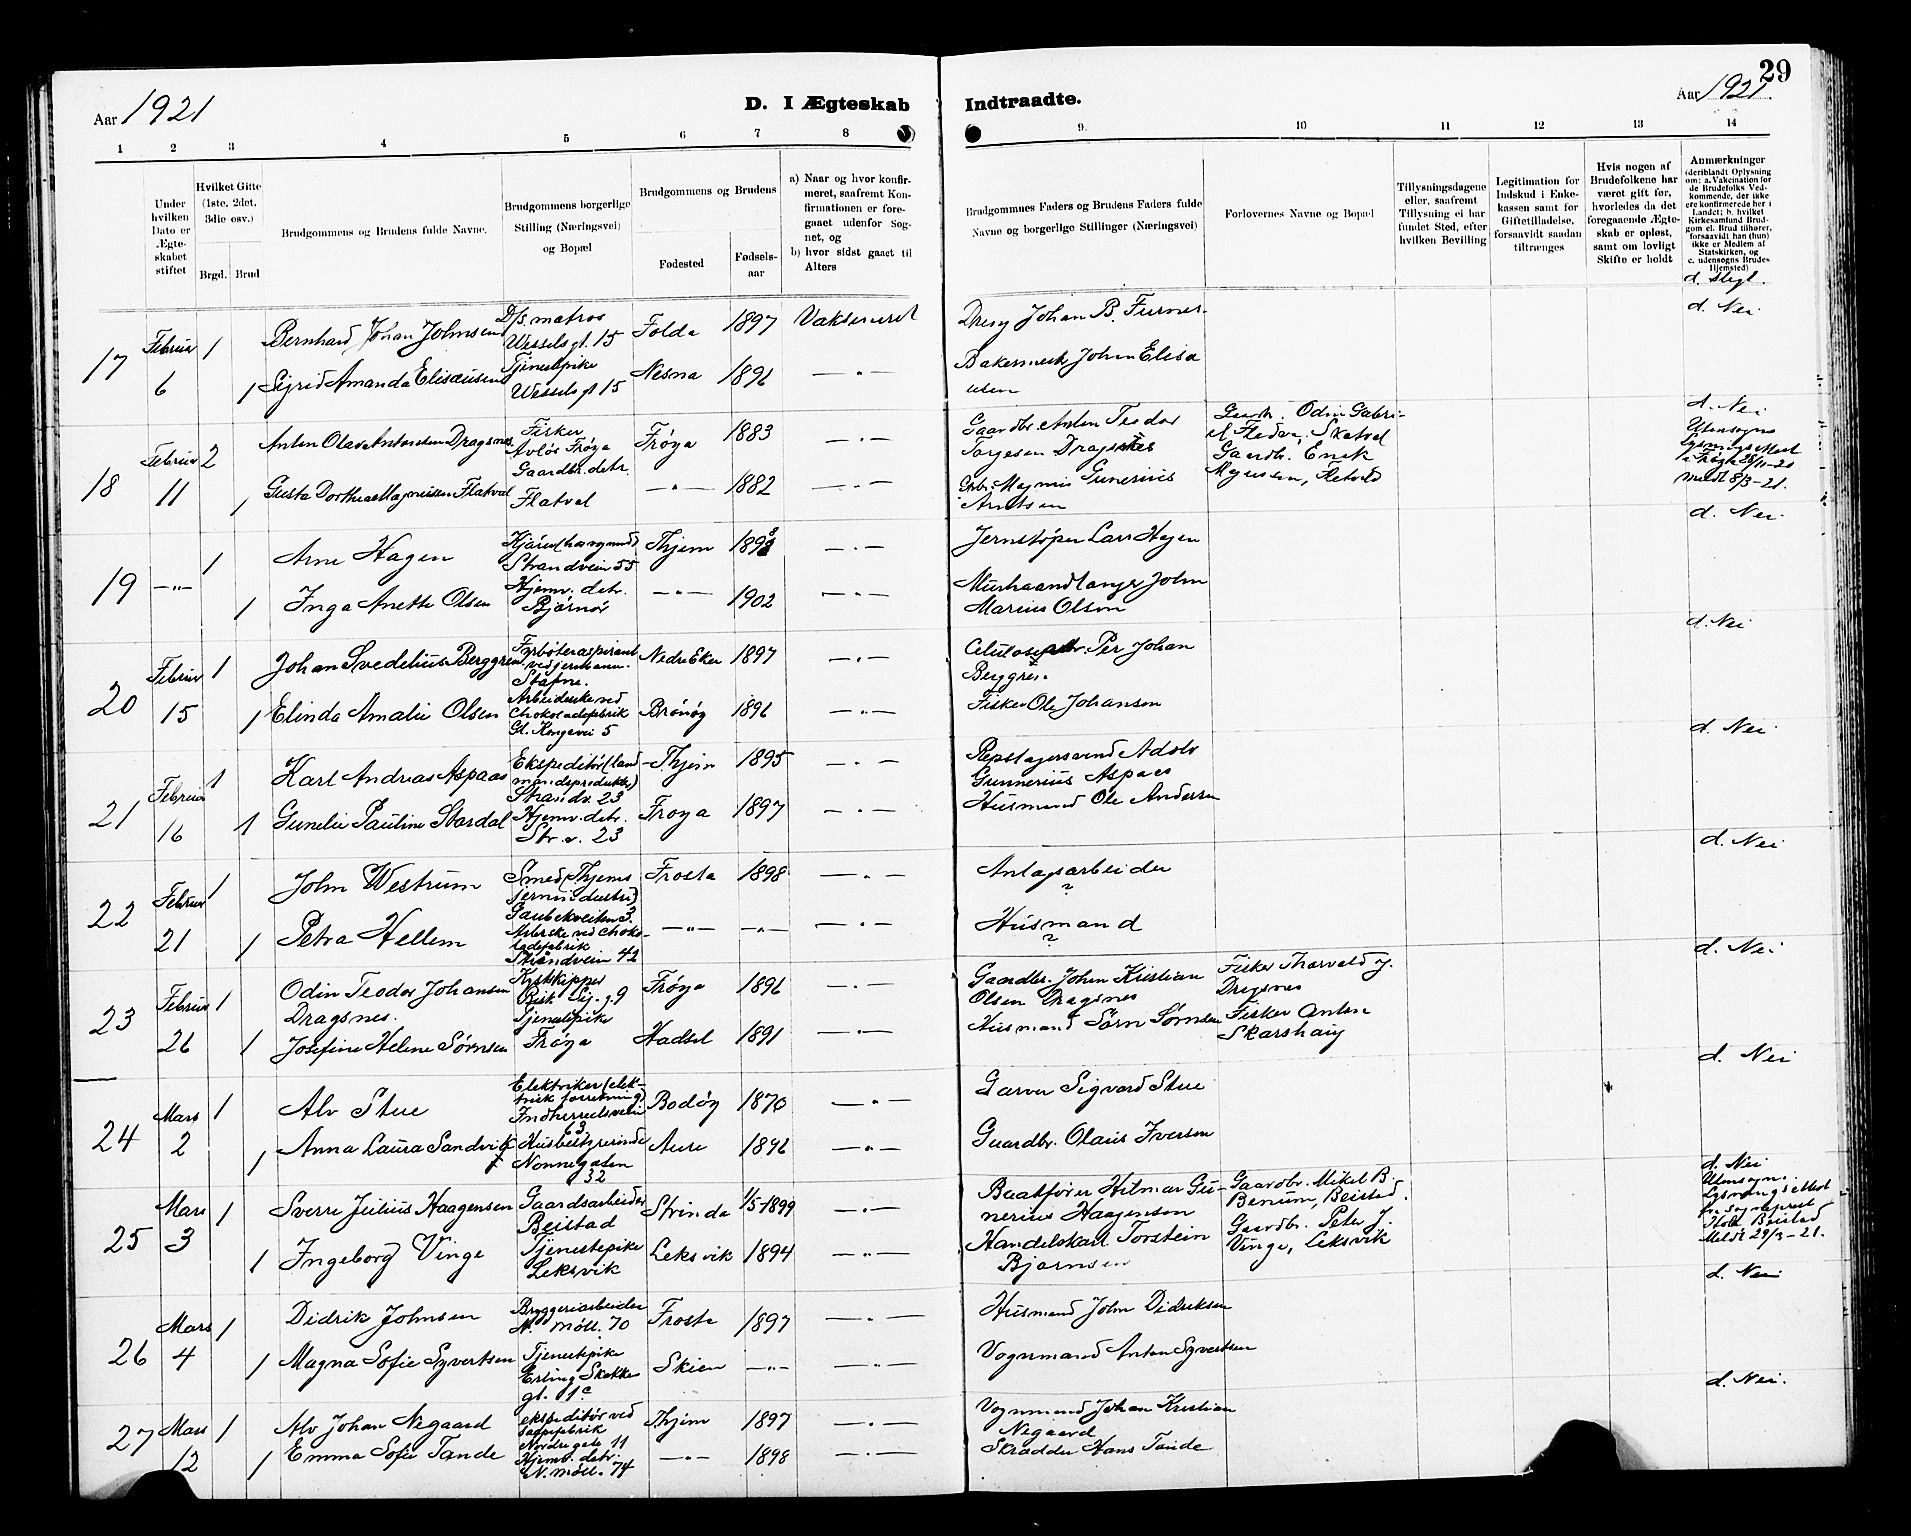 Aar 1921
D. I Ægteskab
Indtraadte.
Aar 1921.
29
1 2 3 4 5 6 7 8 9. 10 11 12 13 14
Under hvilken Dato er Ægteskabet stiftet
Hvilket Gifte (1ste, 2det, 3die osv.)
Brgd. Brud
Brudgommens og Brudens fulde Navne.
Brudgommens borgerlige Stilling (Næringsvei) og Bopæl
Brudgommens og Brudens
Fødested
Fødselsaar
a) Naar og hvor konfirmeret, saafremt Konfirmationen er foregaaet udenfor Sognet, og
b) hvor sidst gaaet til Alters
Brudgommnes Faders og Brudens Faders fulde Navne og borgerlige Stillinger (Næringsvei)
Forlovernes Navne og Bopæl
Tillysningsdagene eller, saafremt Tillysning ei har fundet Sted, efter hvilken Bevilling
Legitimation for Indskud i Enkekassen samt for Giftetilladelse, forsaavidt saadan tiltrænges
Hvis nogen af Brudefolkene har været gift før, hvorledes da det foregaaende Ægteskab er opløst, samt om lovligt Skifte er holdt
Anmærkninger (deriblandt Oplysning om: a. Vakcination for de Brudefolks Vedkommende, der ikke ere konfirmerede her i Landet; b. hvilket Kirkesamfund Brudgom el. Brud tilhører, forsaavidt han (hun) ikke er Medlem af Statskirken, og c. udensogns Brudes Hjemsted)
d. slegt.
17 Februar 1 Bernhard Johan Johnsen D/s. matros Wessels gt. 15 Folda 1897 Johan B. d. Nei
6 1 Sigrid Amanda Eliseusen Tjenestpike Wessels gt 15 Nesna 1896 —"— Bakermest. Johan Eliseusen
18 Februar 2 Anton Olava Antonsen Dragsnes Fisker Avløs Frøya Frøya 1883 —"— Gaardbr. Anton Teodor Torgesen Dragsnes Gaardb. Odin Gabriel Skatval d. Nei Utensogns
11 1 Gusta Dorthea Magnusen Flatval Gaardbr. detr. Flatval —"— 1882 —"— Gbr. Magnus Gunerius Arntsen Gaardb. Enok Magnussen, Flatval Meldt 8/3-21.
19 —"— 1 Arne Hagen Strandvein 55 Thjem —"— Jernstøper Lars Hagen d. Nei
1 Inga Anette Olsen Hjemv. detr. Bjørnør —"— 1902 —"— Murhaandlanger John Marius Olson
20 Februar 1 Johan Svedelius Berggren Fyrbøteraspirant ved jernbanen. Støpne. Nedre Eker 1897 —"— Per Johan Berggren. d. Nei
15 1 Elinda Amalie Olsen Arbeiderske ved Chokoladefabrik Gl. Kongevei 5 Brønøy 1896 Fisker Ole Johansen
21 Februar 1 Karl Andreas Aspaas Ekspeditør (landmandsprodukter) Strandv. 23 Thjem 1895 —"— Repslagersvend Adolv Gunnerius Aspaas d. Nei
16 1 Gunelie Pauline Stordal Hjemv. detr. Str. v. 23 Frøya 1897 —"— Husmand Ole Andersen
22 Februar 1 John Westrum Smed (Thjems jernindustri) Gaubekveiten 3. Frosta 1898 —"— Anlagsarbeider ? d. Nei
21 1 Petra Hellem Arberske ved chokoladefabrik Strandvein 42 —"— —"— —"— Husmand ?
23 Februar 1 Odin Teodor Johansen Dragsnes. Kystskipper Frøya 1896 —"— Gaardbr. Johan Kristian Olsen Dragsnes Fisker Thorvald J. Dragsnes d. Nei
26 1 Josefine Helene Sørnsen Tjenestpike Frøya Hadsel 1891 —"— Husmand Sørn Sørnsen Fisker Anton Skarshaug
24 Mars 1 Alv Stue Elektriker (elektrisk forretning) Indherredsveien 63. Bodøy 1870 —"— Garver Sigvard Stue d. Nei
2 1 Anna Laura Sandvik Husbestyrerinde Nonnegaten 32 Aure 1896 —"— Gaardbr. Olaus Iversen
25 Mars 1 Sverre Julius Haagensen Gaardsarbeider Beistad Strinda 1/5-1899 —"— Baatfører Hilmar Gunerius Haagenson Gaardbr. Mikel B. Benum, Beistad. d. Nei Utensogns. Lysningsattest fra Sogneprest Holt Beistad Meldt 29/3-21.
3 1 Ingeborg Vinge Tjenestepike Leksvik Leksvik 1894 —"— Handelskarl Torstein Bjørnsen Gaardbr. Peter J. Vinge, Leksvik
26 Mars 1 Didrik Johnsen Bryggeriarbeider N. møll. 70 Frosta 1897 —"— Husmand John Didriksen d. Nei
4 1 Magna Sofie Syvertsen Tjenestpike Erling Skakkes gt. 1c Skien —"— —"— Vognmand Anton Syvertsen
27 Mars 1 Alv Johan Negaard ekspeditør ved sæpefabrik Nordregate 11 Thjem 1897 —"— Vognmand Johan Kristian Negaard d. Nei.
12 1 Emma Sofie Tande Hjemv. detr. N. møll. 74 —"— 1898 —"— Skrædder Hans Tande